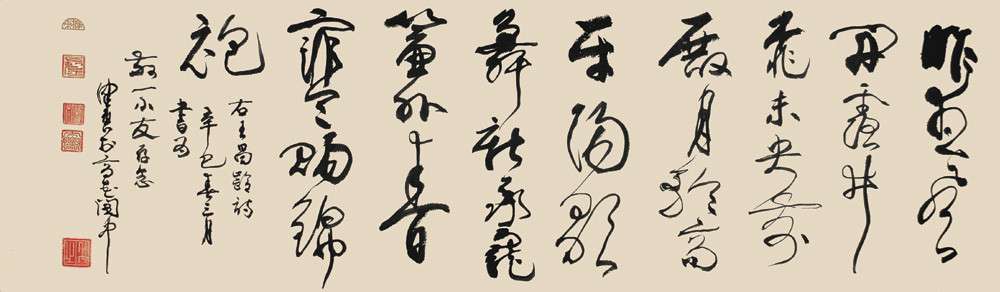 昨夜風
開露井
桃未央前
殿月輪高
平陽歌
舞新承寵
簾外春
寒賜錦
袍
右王昌齡詩
辛巳春三月
書為
小友存念